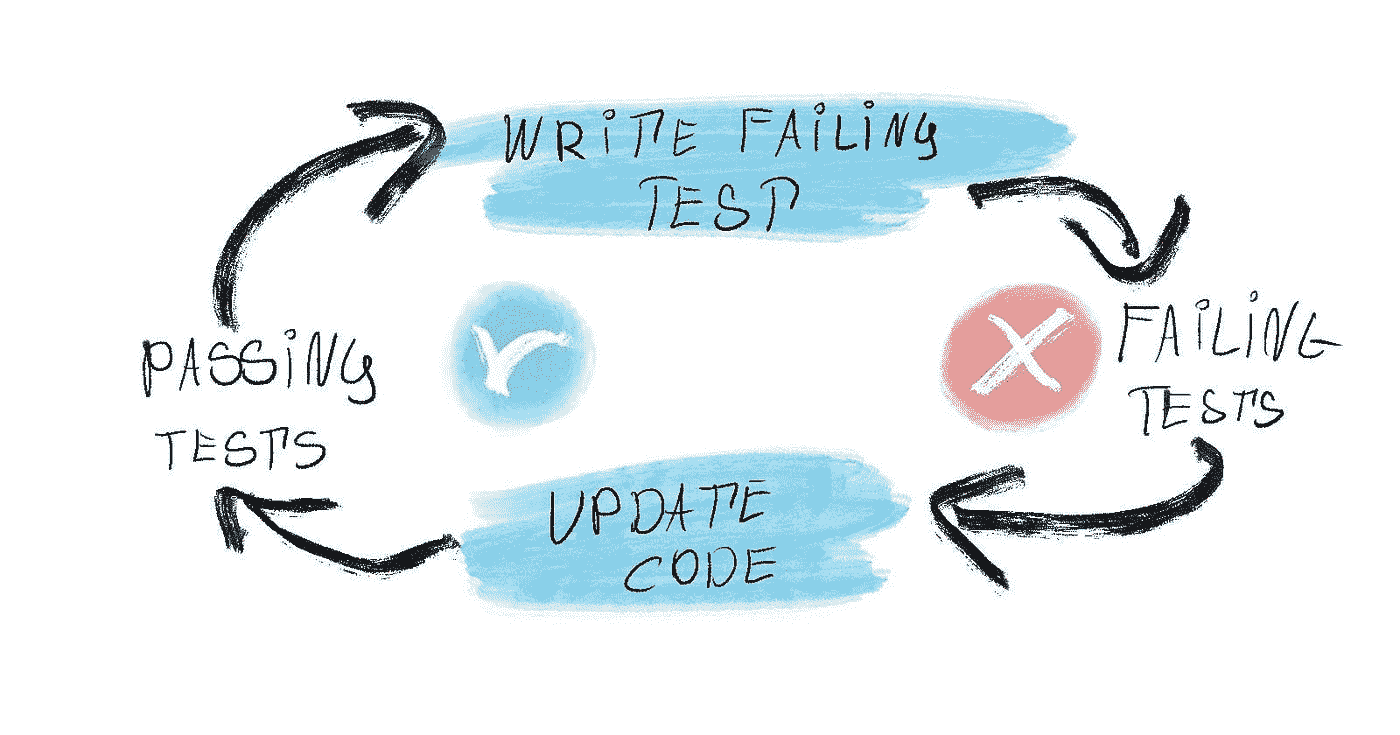 WRITE FAILING
TEST
FAILING
TESTS
UPDATE
CODE
PASSING
TESTS